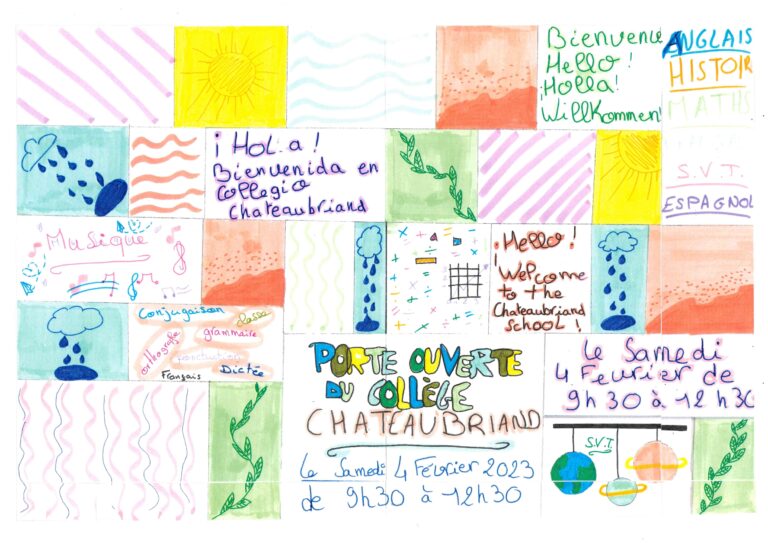 Bienvenue
Hello!
¡Holla!
Willkommen!
ANGLAIS
HISTOIR
MATHS
S.V.T.
ESPAGNOL
¡ HOL.a !
Bienvenida en
Collegio
Chateaubriand
Musique
¡Hello!
Welcome
to the
Chateaubriand
school !
Conjugaison
classe
orthografe
grammaire
ponctuation
Français
Dictée
PORTE OUVERTE
DU COLLÈGE
CHATEAUBRIAND
Le Samedi 4 Février 2023
de 9h30 à 12h30
Le Samedi
4 Feurier de
9h30 à 12h30
S.V.T